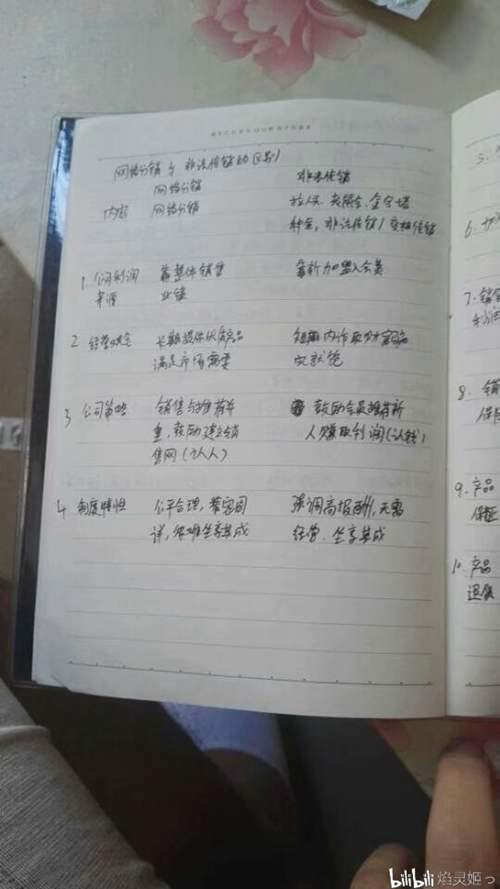 网络分销与非法传销的区别
网络分销 非法传销
内容 网络分销 拉人头、金字塔
非法传销/变相传销
1. 公司利润 靠整体销售 靠新加盟入会费
来源 业绩
2 经营状态 长期提供优质产品 短期内诈取财富
满足市场需要 就跑
3 公司策略 销售与推荐并 鼓励会员推荐新
重,鼓励建立销 人赚取利润(认钱)
售网(认人)
4 制度特性 公平合理, 强调高报酬,无需
详,很难坐享其成 经营、坐享其成
6.
7. 销售
利润
8. 销
保
9. 产品
保证
10. 产品
退货
bilibili 焰灵姬っ